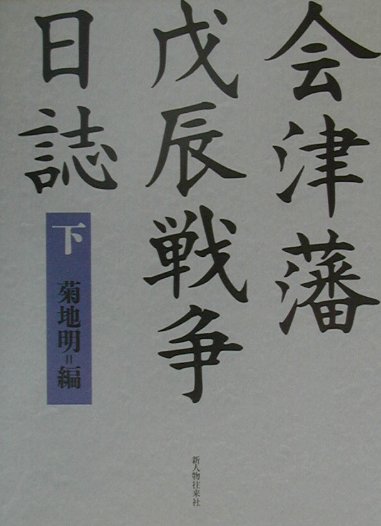 会津藩
戊辰戦争
日誌
下
菊地明=編
新人物往来社